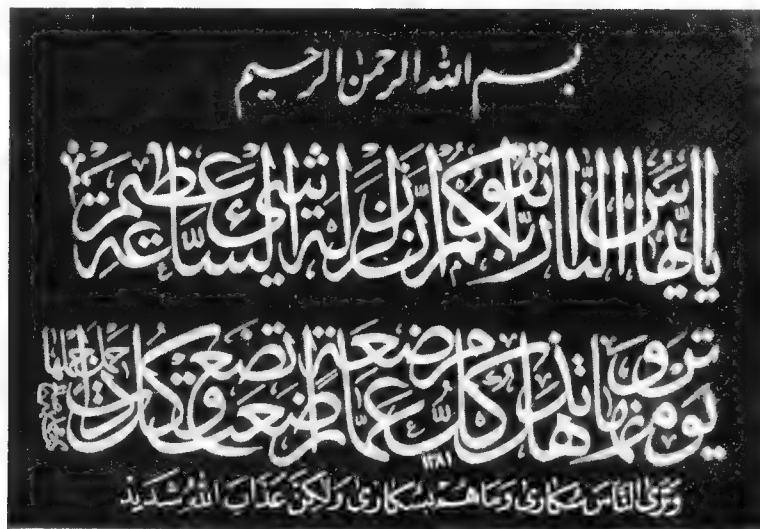 بسم الله الرحمن الرحيم
يا ايها الناس اتقوا ربكم ان زلزلة الساعة شيئ عظيم
يوم ترونها تذهل كل مرضعة عما ارضعت وتضع كل ذات حمل حملها
١٣٨١
وَتَرَى النَّاسَ سُكَارَى وَمَا هُمْ بِسُكَارَى وَلَكِنَّ عَذَابَ اللهِ شَدِيدٌ